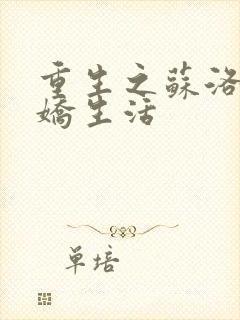 重生之蘇洛
嬌生活
單培